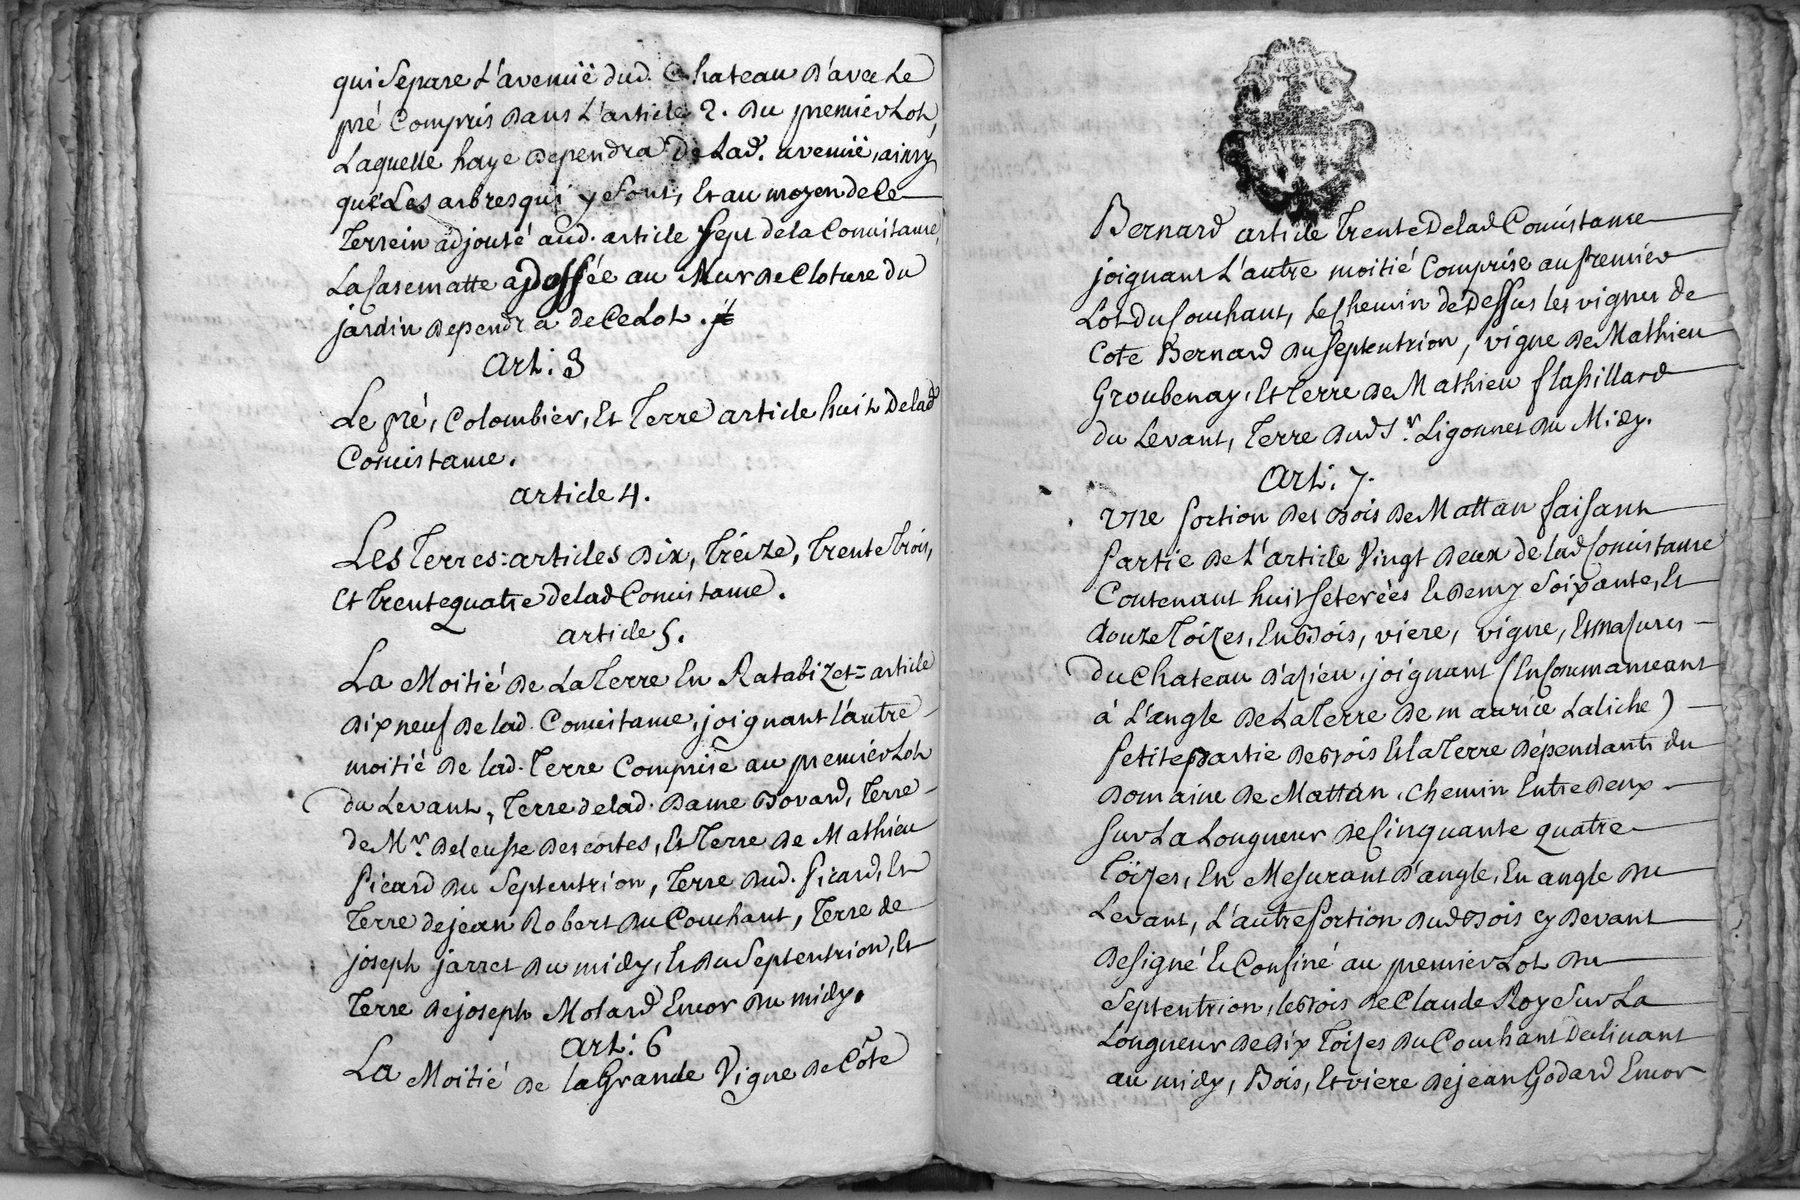 qui Separe L'avenüe dud. Chateau D'avec Le
pré Compris Dans L'article 2. Du premier Lot,
Laquelle haye Dependra De Lad. avenüe, ainsy
que Les arbres qui y Sont, Et au moyen de Ce
Terrein adjouté aud. article Sept de la Consistance,
La Casematte adossée au Mur De Cloture du
jardin Dependra de Ce Lot.
Art: 3
Le pré, Colombier, Et Terre article huit De lad
Consistance.
article 4.
Les Terres: articles Dix, Treize, Trente Trois,
Et Trente quatre de lad Consistance.
article 5.
La Moitié De La Terre En Ratabizet= article
Dix neuf De lad. Consistance, joignant l'autre
moitié De lad. Terre Comprise au premier Lot
du Levant, Terre de lad. Dame Bovard, Terre
de Mr. Deleusse Descostes, Et Terre De Mathieu
Picard Du Septentrion, Terre Dud. Picard, Et
Terre de jean Robert Du Couchant, Terre de
joseph jarret Du midy, Et Du Septentrion, Et
Terre De joseph Molard Encor Du midy.
Art: 6
La Moitié De la Grande Vigne De Côte
Bernard article Trente De lad Consistance
joignant L'autre moitié Comprise au premier
Lot du Couchant, le Chemin de Dessus les vignes de
Cote Bernard Du Septentrion, vigne De Mathieu
Groubenay, Et Terre De Mathieu Flassillard
du Levant, Terre Dud Sr. Ligonnet Du Midy.
Art: 7.
Une Portion Des Bois De Mattan faisant
Partie De L'article Vingt Deux de lad Consistance
Contenant huit Seterées Et Demy Soixante, Et
douze Toizes, En Bois, viere, vigne, Et masures
du Chateau D'azieu, joignant (En Commanceant
à L'angle De La Terre De maurice Laliche)
Petite partie De Bois Et la Terre Dépendants du
Domaine De Mattan, Chemin Entre Deux
Sur La Longueur De Cinquante quatre
Toizes, En Mesurant D'angle, En angle Du
Levant, L'autre Portion Dud Bois Cy Devant
Designé Et Confiné au premier Lot Du
Septentrion, le Bois De Claude Roy Sur La
Longueur De Dix Toizes Du Couchant Declinant
au midy, Bois, Et viere De jean Godard Encor